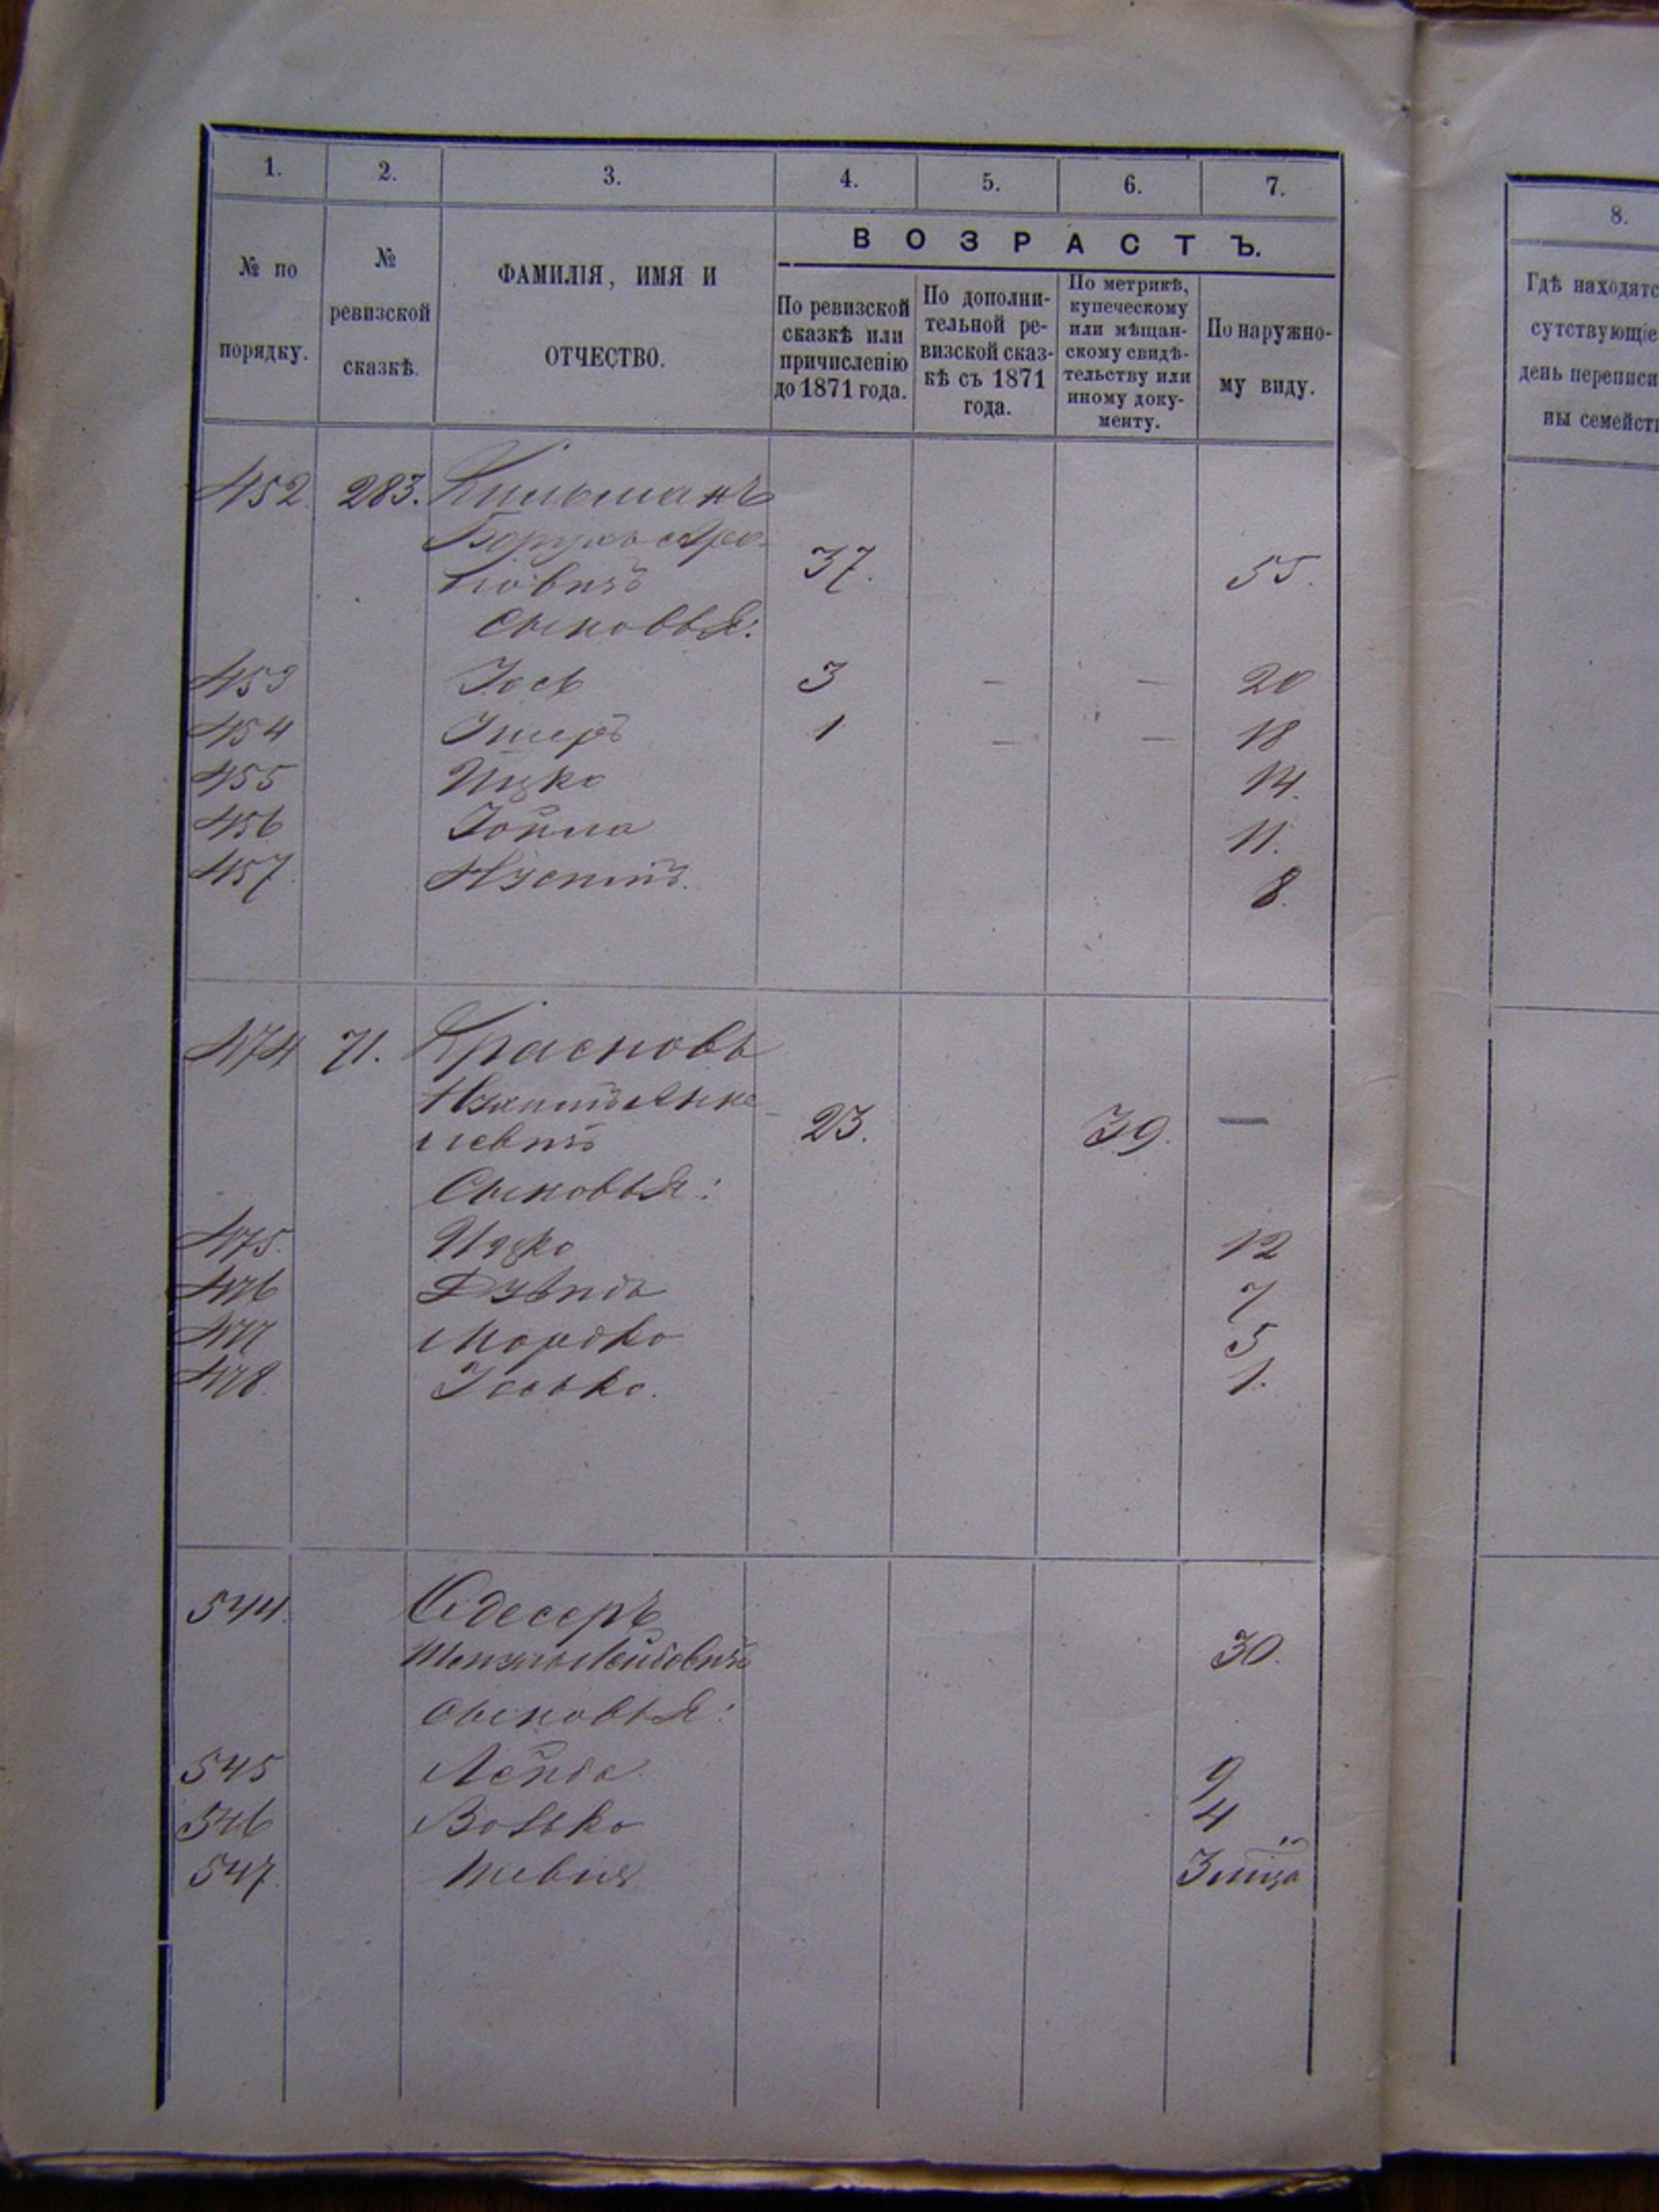 1. 2. 3. 4. 5. 6. 7.
№ по порядку.
№ ревизской сказкѣ.
ФАМИЛІЯ, ИМЯ И
ОТЧЕСТВО.
ВОЗРАСТЪ.
По ревизской
сказкѣ или
причисленію
до 1871 года.
По дополни-
тельной ре-
визской сказ-
кѣ съ 1871
года.
По метрикѣ,
купеческому
или мѣщан-
скому свидѣ-
тельству или
иному доку-
менту.
По наружно-
му виду.
452 283. Кильманъ
Борухъ Аро-
новичъ 37. 55.
Сыновья:
453 Іось 3 — — 20
454 1 — — 18
455 Ицко 14.
456 Іойна 11.
457. 8.
474 71. Красновъ
левичъ 23. 39. —
Сыновья:
475. Ицко 12
476 7
477 Мордко 5
478. Іосько. 1.
544. Одесеръ
Лейбовичъ 30.
сыновья:
545 Лейба 9
546 Волько 4
547. 3 мѣсца
8.
Гдѣ находятс
сутствующіе
день переписи
ны семейст